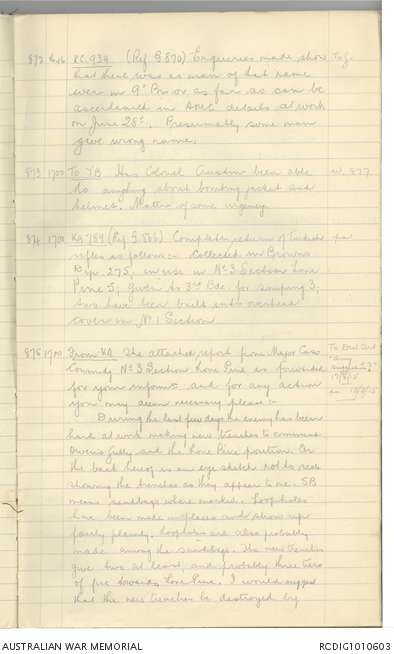 872 KC.939 (Ref G 870) Enquiries made show
that there was no man of that name
ever in 9th Bn or as far as can be
ascertained in AMC details at work
on June 28th. Presumably some man
gave wrong name.
873 1700 To YB Has Colonel Austin been able
to anything about bombing jacket and
helmet. Matter of some urgency.
874 1700 KA 789 (Ref G 866) Complete return of Turkish
rifles as follows :- Collected in Browns
Dip. 275, in use in No 3 Section Lone
Pine 5; given to 3rd Bde. for sniping 3;
two have been built into overhead
cover in No 1 Section
875 1700 From KA The attached report from Major Cass
Commdg No 3 Section Lone Pine is forwarded
for your informn and for any action
you may deem necessary please :-
During the last few days the enemy has been
hard at work making new trenches to command
Owens Gully and the Lone Pine position. On
the back hereof is an eye sketch not to scale
showing the trenches as they appear to me. SB
means sandbags where marked. Loopholes
have been made in places and show up
fairly plainly. Loopholes are also probably
made among the sandbags. The new trenches
give two at least, and probably three tiers
of fire towards Lone Pine. I would suggest
that the new trenches be destroyed by
AUSTRALIAN WAR MEMORIAL
RCDIG1010603